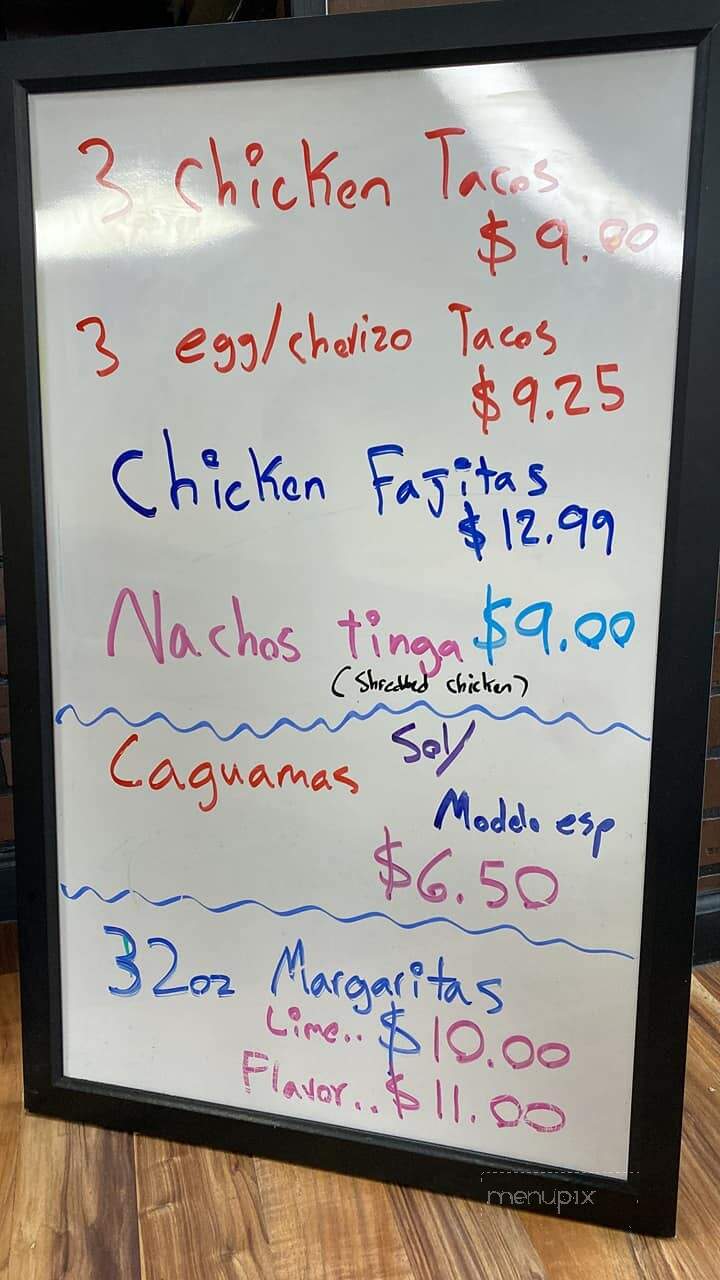 3 Chicken Tacos
$9.00
3 egg/chorizo Tacos
$9.25
Chicken Fajitas
$12.99
Nachos tinga $9.00
(Shredded chicken)
Caguamas Sol/
Modelo esp
$6.50
32oz Margaritas
Lime.. $10.00
Flavor.. $11.00
menupix